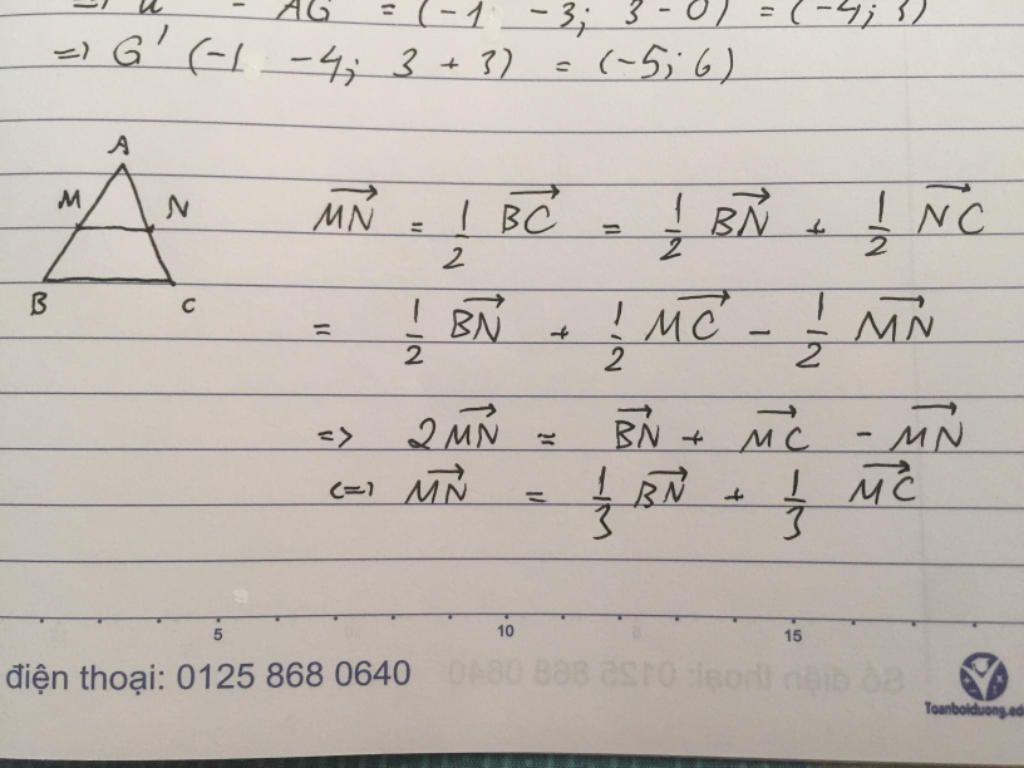 => u = AG = (-1 -3; 3-0) = (-4; 3)
=> G' (-1 -4; 3 + 3) = (-5; 6)
A
M N
B C
MN = 1/2 BC = 1/2 BN + 1/2 NC
= 1/2 BN + 1/2 MC - 1/2 MN
=> 2MN = BN + MC - MN
<=> MN = 1/3 BN + 1/3 MC
5 10 15
điện thoại: 0125 868 0640
Toanboiduong.ed